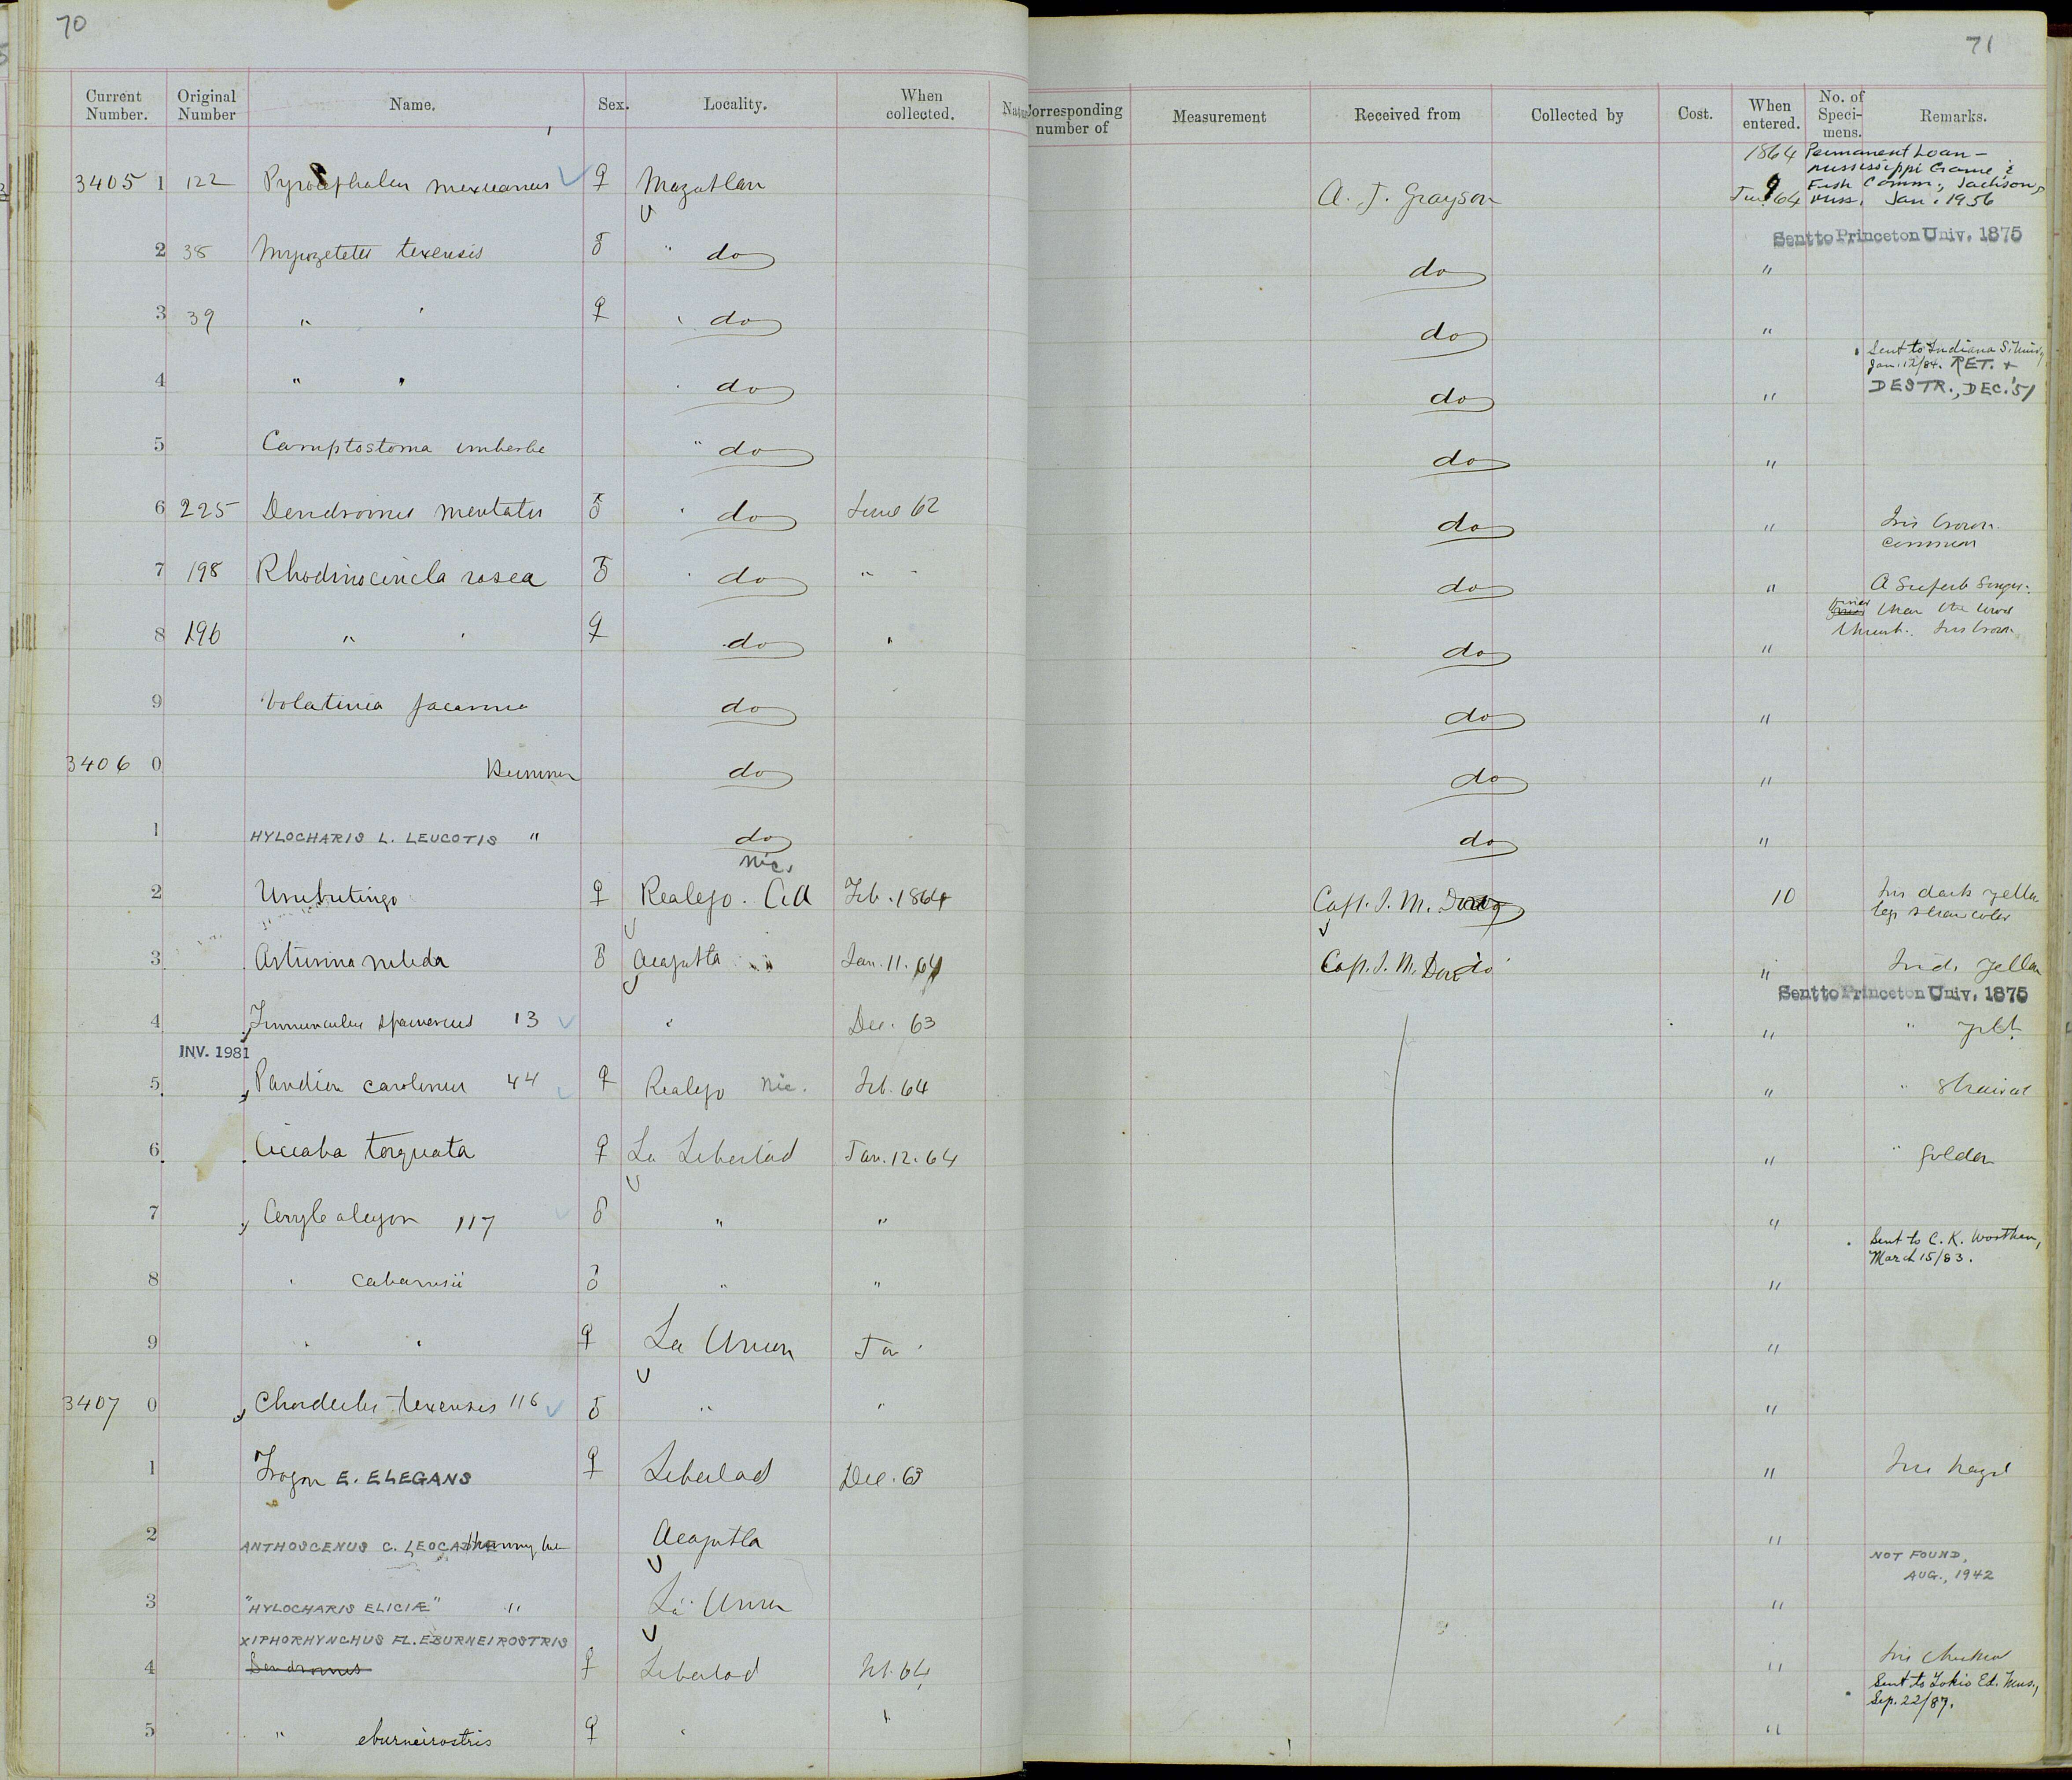 70
71
Current Number. Original Number Name. Sex. Locality. When collected. Natu
Corresponding number of Measurement Received from Collected by Cost. When entered. No. of Speci-mens. Remarks.
1864 Permanent Loan -
Mississippi Game &
Fish Comm., Jackson,
Miss. Jan. 1956
3405 1 122 Pyrocephalus mexicanus ♀ Mazatlan A. J. Grayson Jun. 9 64
Sent to Princeton Univ. 1875
2 38 Myiozetetes texensis ♂ " do do "
3 39 " " ♀ do do "
Sent to Indiana S. Univ.,
Jan. 12/84. RET. +
DESTR., DEC. '51
4 " " do do "
5 Camptostoma imberbe " do do "
6 225 Dendrornis mentalis ♂ do June 62 do " Iris brown.
common
7 198 Rhodinocincla rosea ♂ do " " do " A Superb Singer.
finer than the wood
thrush. Iris brown
8 196 " " ♀ do " do "
9 Volatinia jacarina do do "
3406 0 Hummer do do "
1 HYLOCHARIS L. LEUCOTIS " do do "
Nic.
2 Urubutinga ♀ Realejo. C.A Feb. 1864 Capt. J. M. Dow 10 Iris dark yellow
legs straw color
3 Asturina nitida ♂ Acajutla " Jan. 11. 64 Capt. J. M. Dow do " Irid. yellow
Sent to Princeton Univ. 1875
4 Tinnunculus sparverius 13 " Dec. 63 " "
INV. 1981
5 Pandion carolinus 44 ♀ Realejo Nic. Feb. 64 " "
6 Ciccaba torquata ♀ La Libertad Jan. 12. 64 " " golden
7 Ceryle alcyon 117 ♂ " " "
Sent to C. K. Worthen,
March 15/83.
8 " cabanisii ♂ " " "
9 " " ♀ La Union Jan " "
3407 0 Chordeiles texensis 116 ♂ " " "
1 Trogon E. ELEGANS ♀ Libertad Dec. 63 " Iris hazel
2 ANTHOSCENUS C. LEOCADIAE Acajutla "
NOT FOUND,
AUG., 1942
3 "HYLOCHARIS ELICIÆ" " La Union "
XIPHORHYNCHUS FL. EBURNEIROSTRIS
4 Dendrornis ♀ Libertad Feb. 64 "
Sent to Tokio Ed. Mus.,
Sep. 22/87.
5 " eburneirostris ♀ " " "